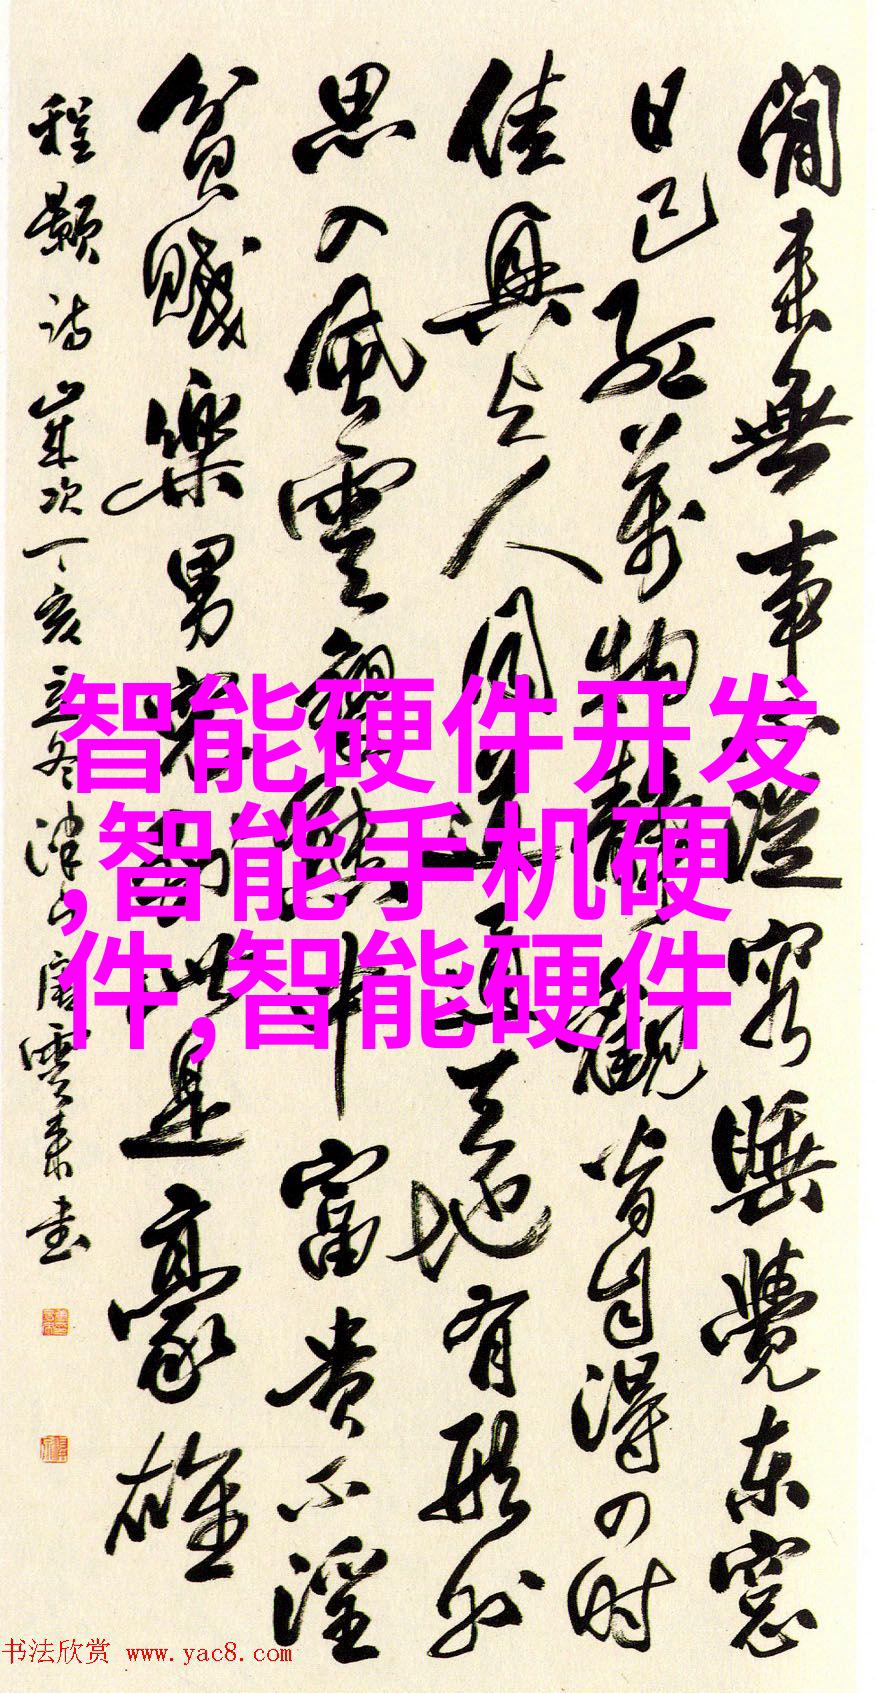 閒来無事不從容睡覺东窓
日已紅萬物靜觀皆自得四时
佳興与人同道通天地有形外
思入風雲變態中富貴不淫
貧賤樂男兒到此是豪雄
程颢诗歲次丁亥立冬津山唐雲来书
智能硬件开发
,智能手机硬
件,智能硬件
书法欣赏 www.yac8.com